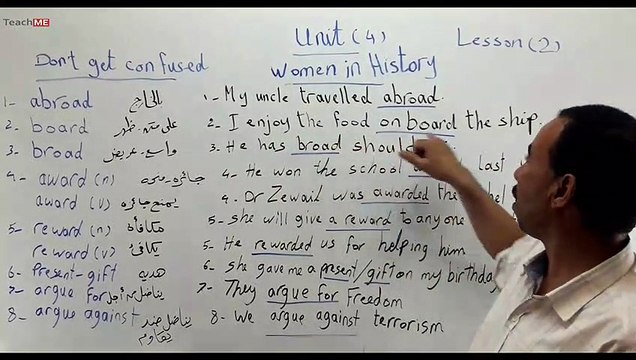 TeachME
Unit (4)
Lesson (2)
Women in History
Don't get confused
1- abroad الخارج
2- board على متن - ظهر
3- broad واسع - عريض
4- award (n) جائزة - منحة
award (v) يمنح جائزة
5- reward (n) مكافأة
reward (v) يكافئ
6- Present - gift هدية
7- argue for يناضل من أجل
8- argue against يناضل ضد
يقاوم
1- My uncle travelled abroad.
2- I enjoy the food on board the ship.
3- He has broad should
4- He won the school last
4. Dr Zewail was awarded the
5- she will give a reward to anyone
5- He rewarded us for helping him
6- she gave me a present / gift on my birthday
7- They argue for Freedom
8- We argue against terrorism